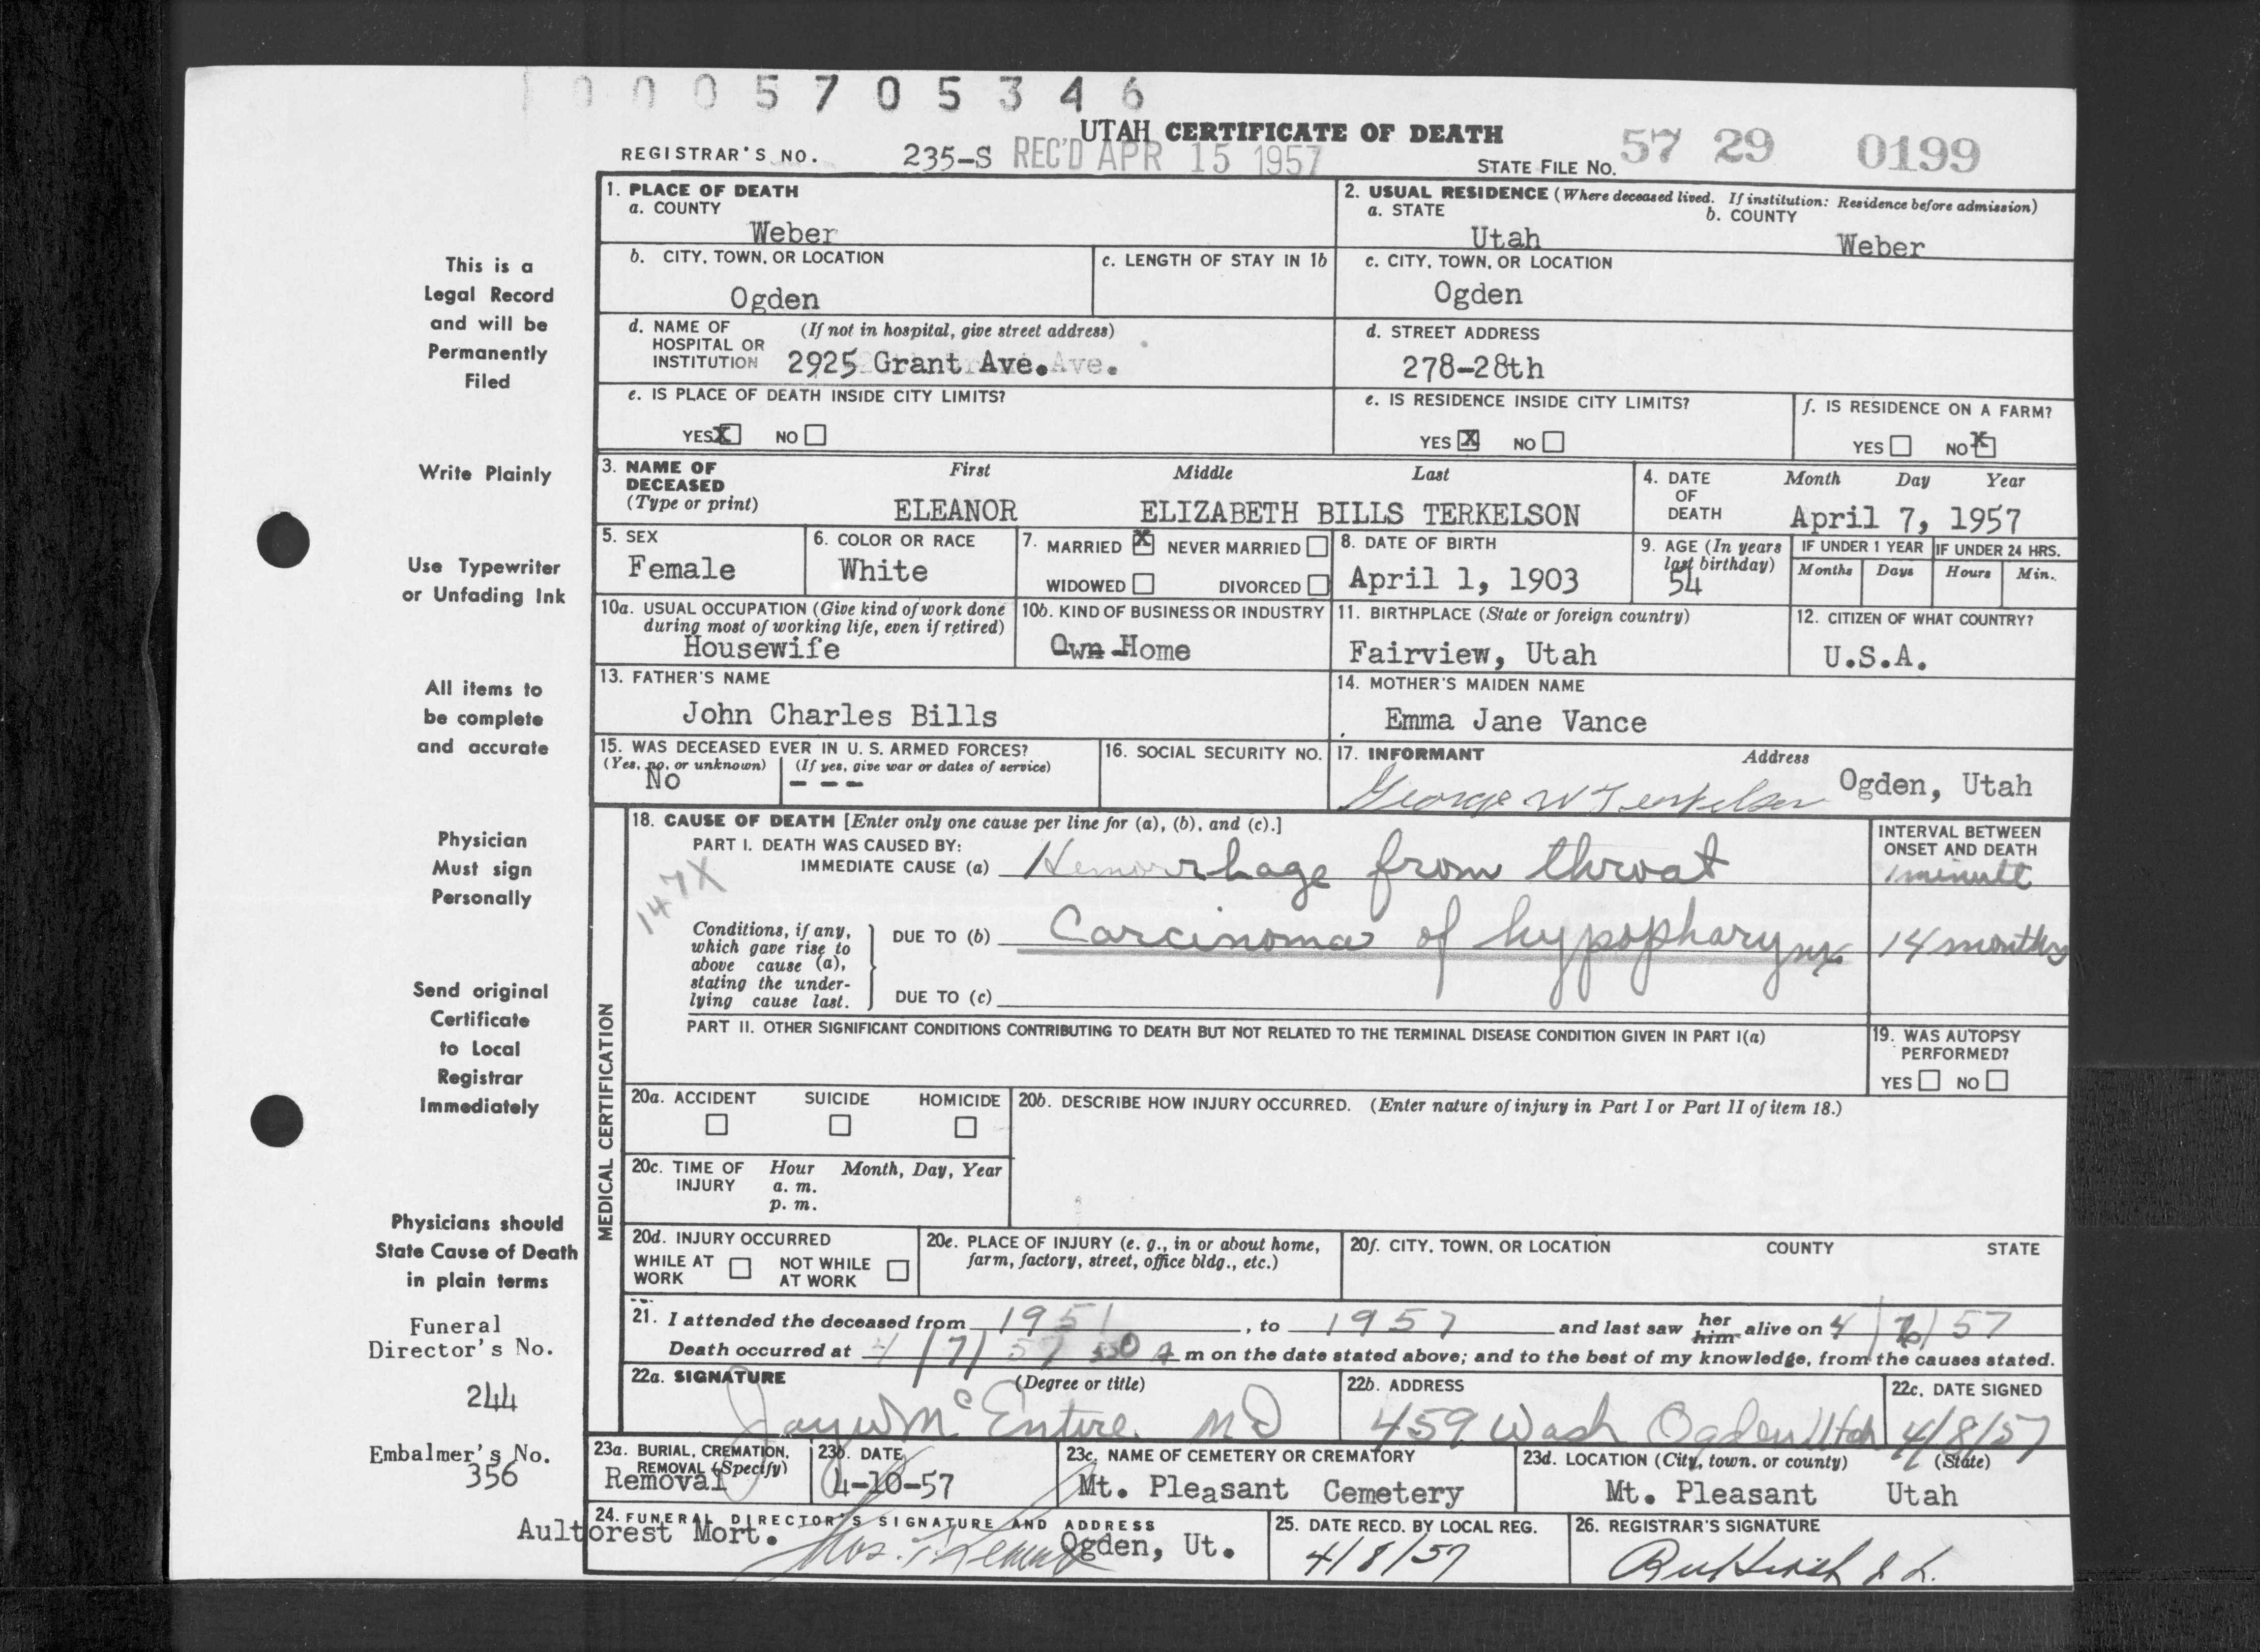 0005705346
UTAH CERTIFICATE OF DEATH
REGISTRAR'S NO. 235-S REC'D APR 15 1957 STATE FILE NO. 57 29 0199
1. PLACE OF DEATH
a. COUNTY
Weber
2. USUAL RESIDENCE (Where deceased lived. If institution: Residence before admission)
a. STATE b. COUNTY
Utah Weber
b. CITY, TOWN, OR LOCATION
Ogden
c. LENGTH OF STAY IN 1b
c. CITY, TOWN, OR LOCATION
Ogden
d. NAME OF HOSPITAL OR INSTITUTION (If not in hospital, give street address)
2925 Grant Ave. Ave.
d. STREET ADDRESS
278-28th
e. IS PLACE OF DEATH INSIDE CITY LIMITS?
YES X NO
e. IS RESIDENCE INSIDE CITY LIMITS?
YES X NO
f. IS RESIDENCE ON A FARM?
YES NO X
3. NAME OF DECEASED (Type or print) First Middle Last
ELEANOR ELIZABETH BILLS TERKELSON
4. DATE OF DEATH Month Day Year
April 7, 1957
5. SEX
Female
6. COLOR OR RACE
White
7. MARRIED X NEVER MARRIED
WIDOWED DIVORCED
8. DATE OF BIRTH
April 1, 1903
9. AGE (In years last birthday)
54
IF UNDER 1 YEAR IF UNDER 24 HRS.
Months Days Hours Min.
10a. USUAL OCCUPATION (Give kind of work done during most of working life, even if retired)
Housewife
10b. KIND OF BUSINESS OR INDUSTRY
Own Home
11. BIRTHPLACE (State or foreign country)
Fairview, Utah
12. CITIZEN OF WHAT COUNTRY?
U.S.A.
13. FATHER'S NAME
John Charles Bills
14. MOTHER'S MAIDEN NAME
Emma Jane Vance
15. WAS DECEASED EVER IN U. S. ARMED FORCES?
(Yes, no, or unknown) (If yes, give war or dates of service)
No ---
16. SOCIAL SECURITY NO.
17. INFORMANT Address
George W Terkelson Ogden, Utah
MEDICAL CERTIFICATION
18. CAUSE OF DEATH [Enter only one cause per line for (a), (b), and (c).]
PART I. DEATH WAS CAUSED BY:
IMMEDIATE CAUSE (a) Hemorrhage from throat
INTERVAL BETWEEN ONSET AND DEATH
1 minute
147X
Conditions, if any, which gave rise to above cause (a), stating the underlying cause last.
DUE TO (b) Carcinoma of hypopharynx 14 months
DUE TO (c)
PART II. OTHER SIGNIFICANT CONDITIONS CONTRIBUTING TO DEATH BUT NOT RELATED TO THE TERMINAL DISEASE CONDITION GIVEN IN PART I(a)
19. WAS AUTOPSY PERFORMED?
YES NO
20a. ACCIDENT SUICIDE HOMICIDE
20b. DESCRIBE HOW INJURY OCCURRED. (Enter nature of injury in Part I or Part II of item 18.)
20c. TIME OF INJURY Hour Month, Day, Year
a. m.
p. m.
20d. INJURY OCCURRED
WHILE AT WORK NOT WHILE AT WORK
20e. PLACE OF INJURY (e. g., in or about home, farm, factory, street, office bldg., etc.)
20f. CITY, TOWN, OR LOCATION COUNTY STATE
21. I attended the deceased from 1951, to 1957 and last saw her him alive on 4/6/57
Death occurred at 4/7/57 530 A m on the date stated above; and to the best of my knowledge, from the causes stated.
22a. SIGNATURE (Degree or title)
Jay W McEntire MD
22b. ADDRESS
459 Wash Ogden Utah
22c. DATE SIGNED
4/8/57
23a. BURIAL, CREMATION, REMOVAL (Specify)
Removal
23b. DATE
4-10-57
23c. NAME OF CEMETERY OR CREMATORY
Mt. Pleasant Cemetery
23d. LOCATION (City, town, or county) (State)
Mt. Pleasant Utah
24. FUNERAL DIRECTOR'S SIGNATURE AND ADDRESS
Aultorest Mort. Ogden, Ut.
25. DATE RECD. BY LOCAL REG.
4/8/57
26. REGISTRAR'S SIGNATURE
This is a
Legal Record
and will be
Permanently
Filed
Write Plainly
Use Typewriter
or Unfading Ink
All items to
be complete
and accurate
Physician
Must sign
Personally
Send original
Certificate
to Local
Registrar
Immediately
Physicians should
State Cause of Death
in plain terms
Funeral
Director's No.
244
Embalmer's No.
356